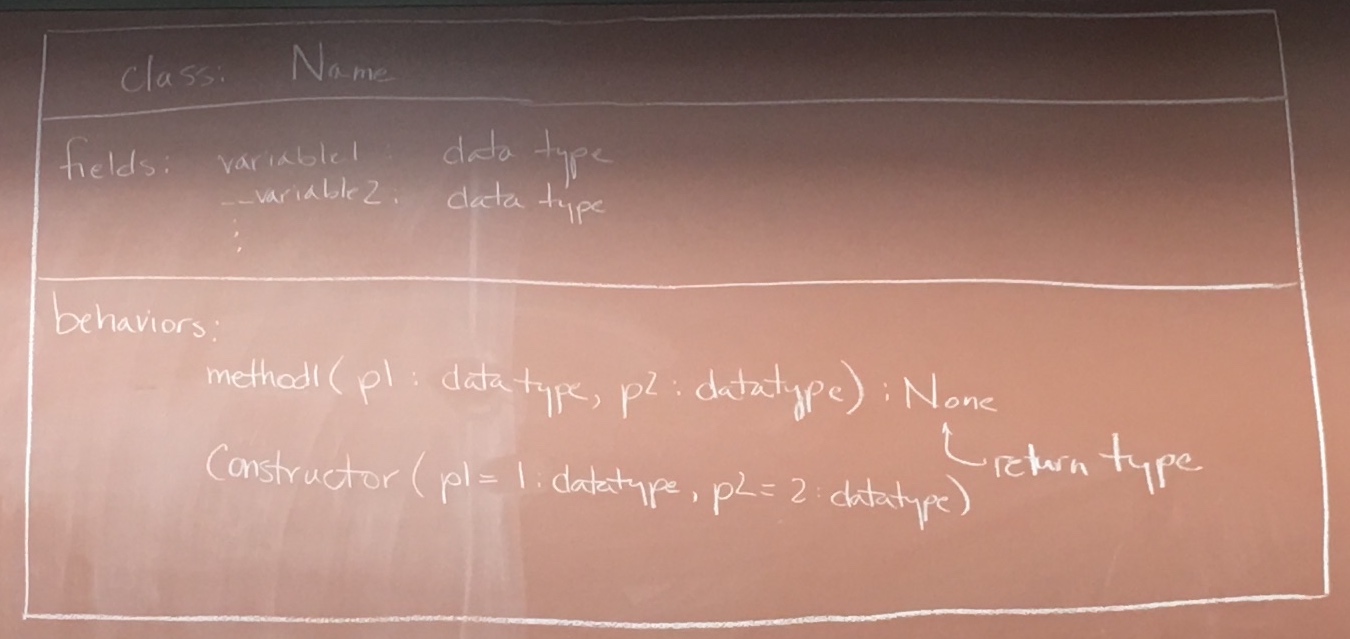 class: Name
fields: variable1: data type
__variable2: data type
behaviors:
method1(p1: data type, p2: datatype): None
return type
Constructor(p1=1:datatype, p2=2:datatype)